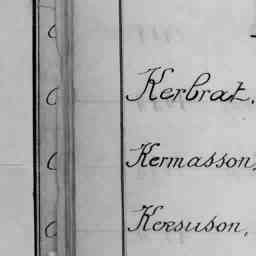 Kerbrat.
Kermasson,
Kersuson,